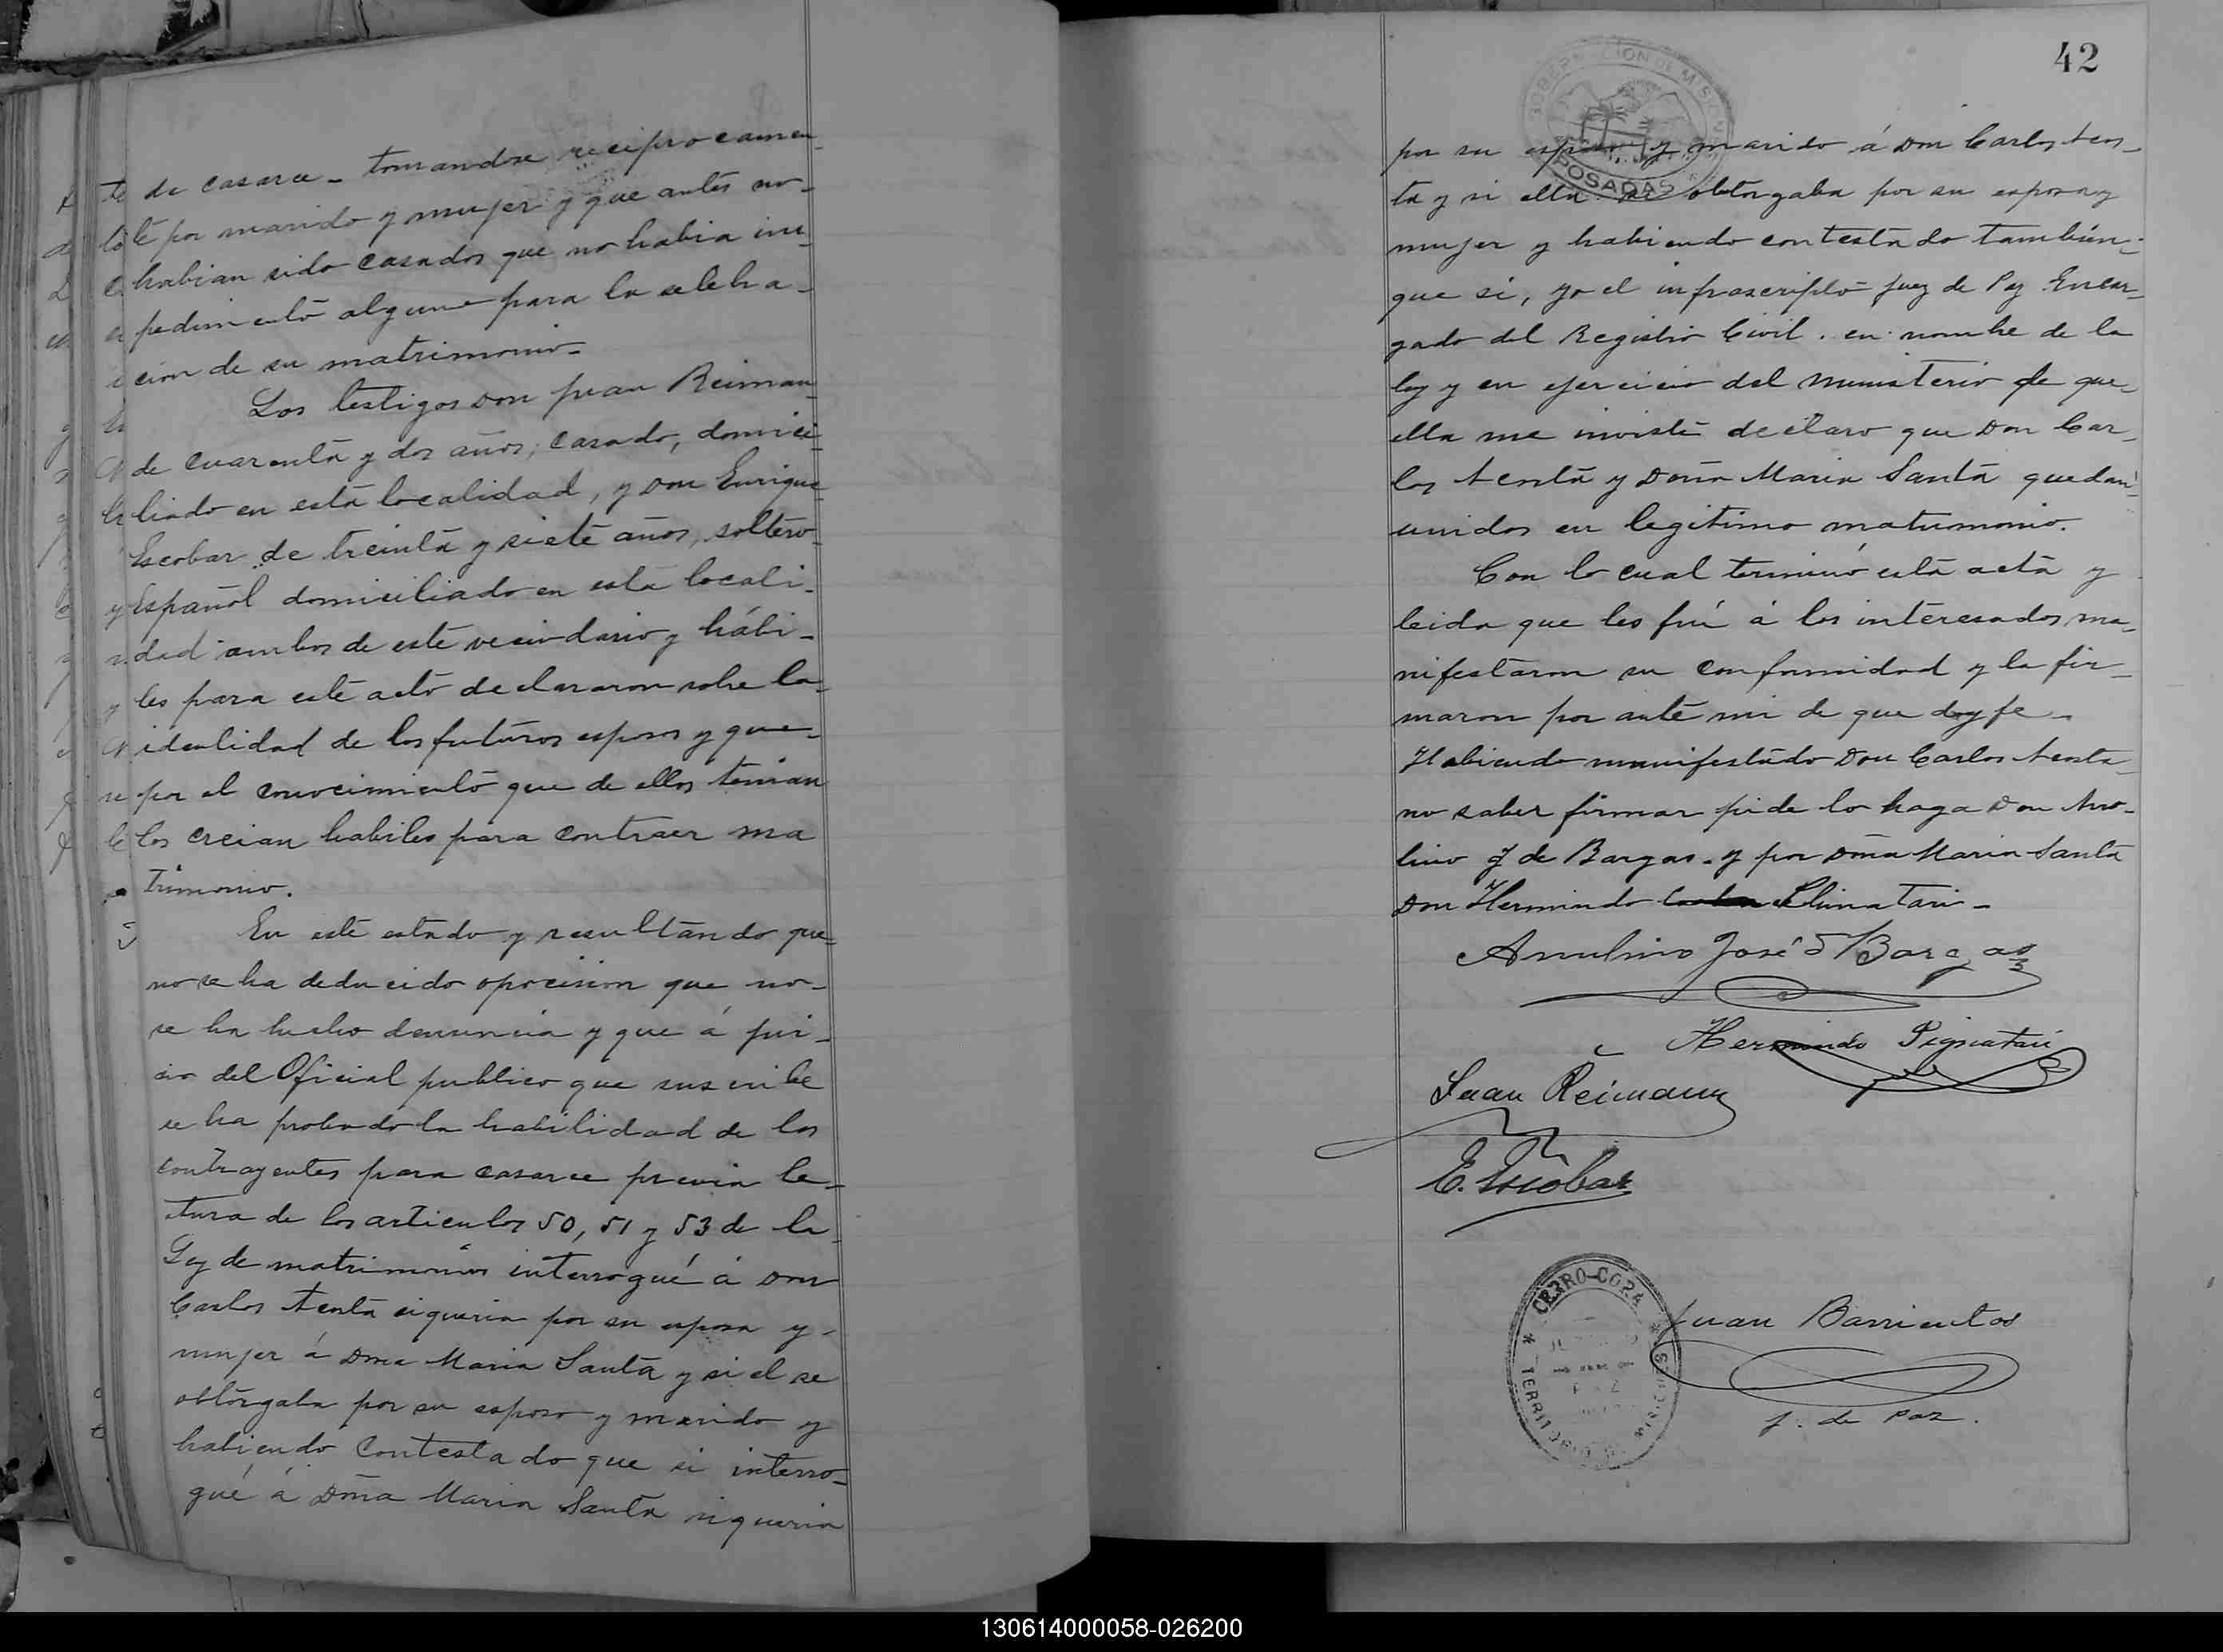 de casarce - tomandose reciprocamen-
te por marido y mujer y que antes no-
habian sido casados que no habia im-
pedimento alguno para la celebra-
cion de su matrimonio-
Los testigos Don Juan Reiman
de cuarenta y dos años, casado, domici-
liado en esta localidad, y Don Enrique
Escobar de treinta y siete años, soltero-
Español domiciliado en esta locali-
dad ambos de este vecindario y hábi-
les para este acto declararon sobre la-
identidad de los futuros esposos y que-
por el conocimiento que de ellos tenian
los creian habiles para contraer ma
trimonio.
En este estado y resultando que-
no se ha deducido oposicion que no-
se ha hecho denuncia y que á jui-
cio del Oficial publico que suscribe
se ha probado la habilidad de los
contrayentes para casarce previa le-
tura de los articulos 50, 51 y 53 de la
Ley de matrimonios interrogué á Don
Carlos si queria por su esposa y-
mujer á Dña Maria Santa y si el se
obtorgaba por su esposo y marido y
habiendo contestado que si interro-
gué á Dña Maria Santa si queria
42
GOBERNACION DE MISIONES
POSADAS
por su esposo y marido á Don Carlos
y si ella se obtorgaba por su esposa y
mujer y habiendo contestado tambien-
que si, yo el infrascripto Juez de Paz Encar-
gado del Registro Civil. en nombre de la
ley y en ejercicio del ministerio de que-
ella me inviste declaro que Don Car-
los y Doña Maria Santa quedan-
unidos en legitimo matrimonio.
Con lo cual terminó esta acta y
leida que les fué á los interesados ma-
nifestaron su conformidad y la fir-
maron por ante mi de que doy fe-
Habiendo manifestado Don Carlos
no saber firmar pide lo haga Don Anu-
lino J de Bargas. y por Dña Maria Santa
Don Hermindo
Anulino José d Bargas
Hermindo Pignatari
Juan Reimann
E. Escobar
CERRO-CORA
TERRITORIO MISIONES
PAZ
Juan Barrientos
J. de Paz.
130614000058-026200